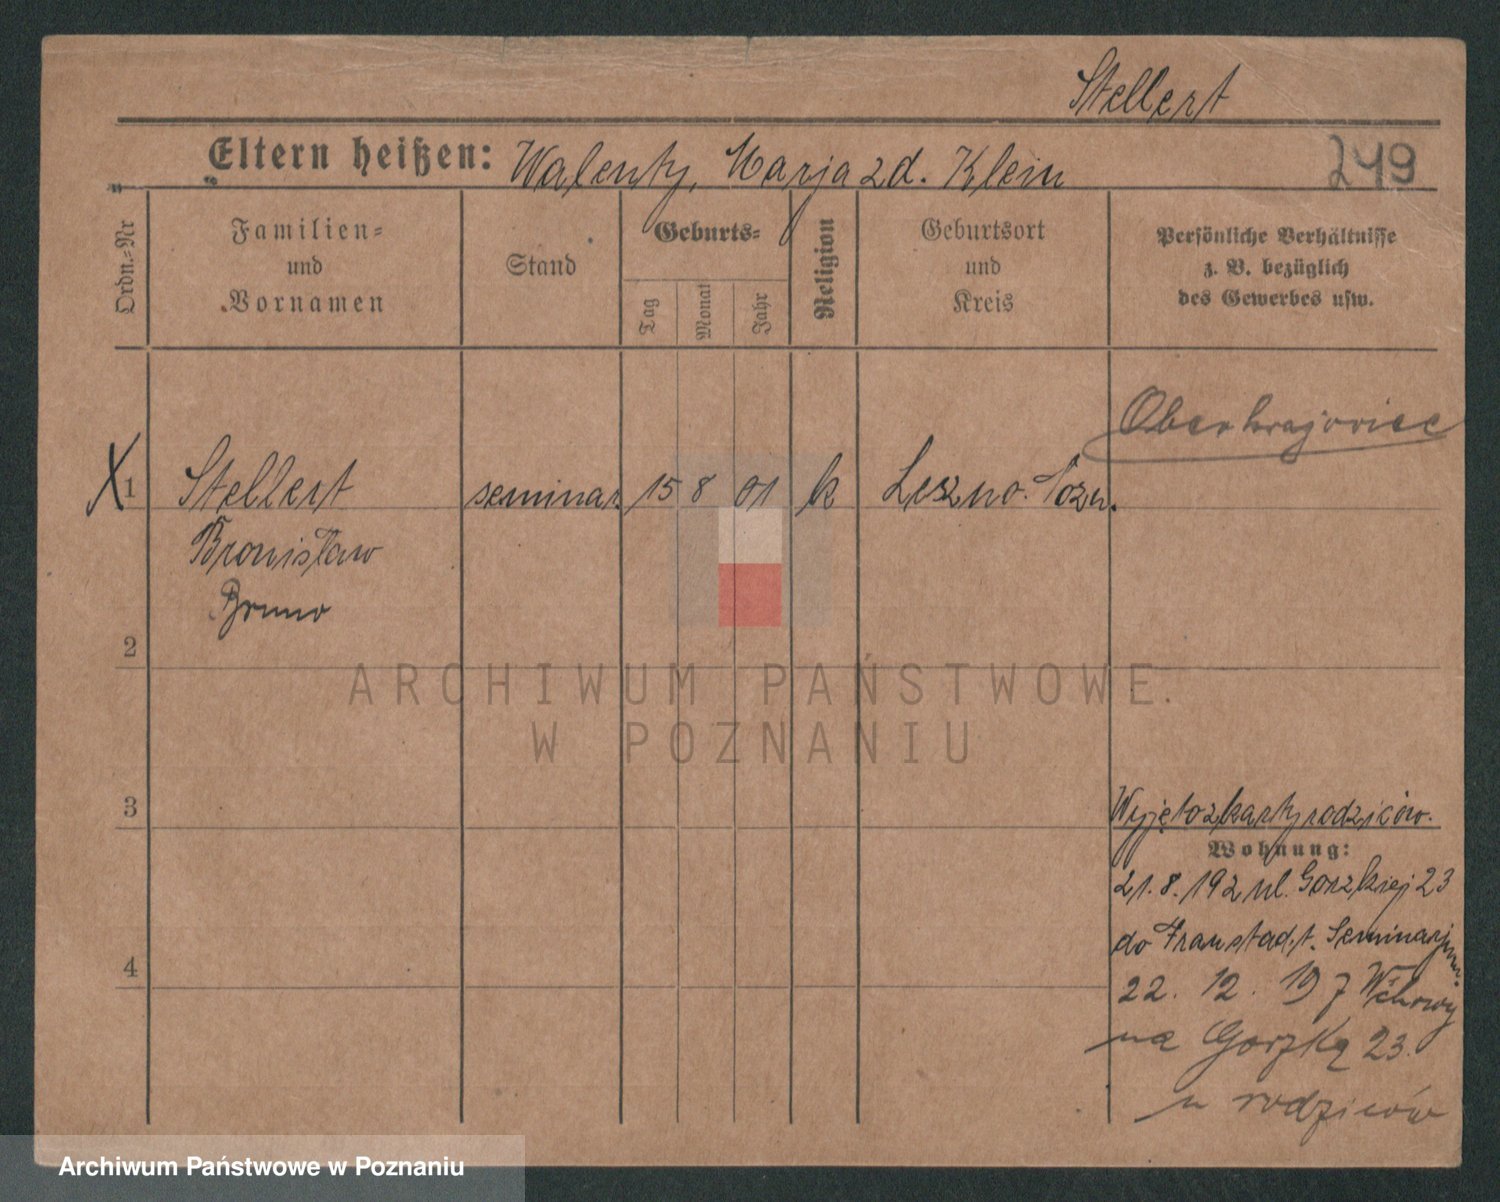 Stellert
Eltern heißen: Walenty, Marja zd. Klein
249
Ordn.-Nr
Familien-
und
Vornamen
Stand
Geburts-
Tag
Monat
Jahr
Religion
Geburtsort
und
Kreis
Persönliche Verhältnisse
z. B. bezüglich
des Gewerbes usw.
X 1 Stellert seminar. 15 8 01 k Leszno. Pozn.
Bronisław
Bruno
2
3
4
Wyjęto z karty rodziców.
Wohnung:
21.8.192 ul. Gorzkiej 23
do Fraustadt. Seminarjum.
22. 12. 19 z Wschowy
na Gorzką 23.
u rodziców
ARCHIWUM PAŃSTWOWE
W POZNANIU
Archiwum Państwowe w Poznaniu